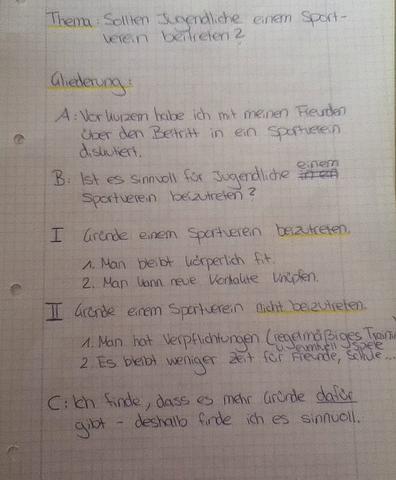 Thema: Sollten Jugendliche einem Sport-
verein beitreten?
Gliederung:
A: Vor kurzem habe ich mit meinen Freunden
über den Beitritt in ein Sportverein
diskutiert.
B: Ist es sinnvoll für Jugendliche einem
Sportverein beizutreten?
I Gründe einem Sportverein beizutreten.
1. Man bleibt körperlich fit.
2. Man kann neue Kontakte knüpfen.
II Gründe einem Sportverein nicht beizutreten.
1. Man hat Verpflichtungen (regelmäßiges Traini
Spiele
2. Es bleibt weniger Zeit für Freunde, Schule...
C: Ich finde, dass es mehr Gründe dafür
gibt - deshalb finde ich es sinnvoll.